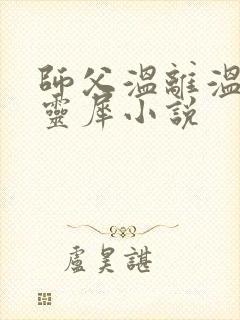 師父溫離溫
靈犀小說
盧昊諶